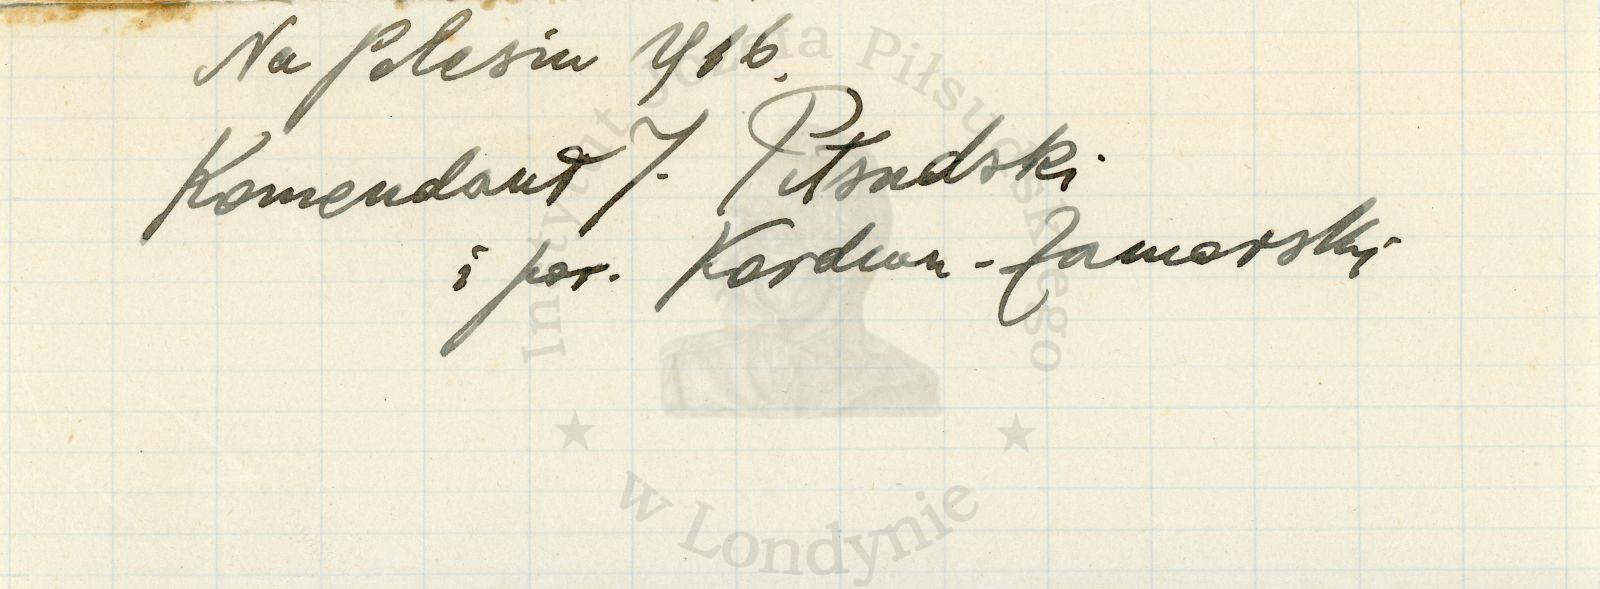 Na Polesiu 916.
Komendant J. Piłsudski
i por. Kordian-Zamorski
Instytut Józefa Piłsudskiego
w Londynie